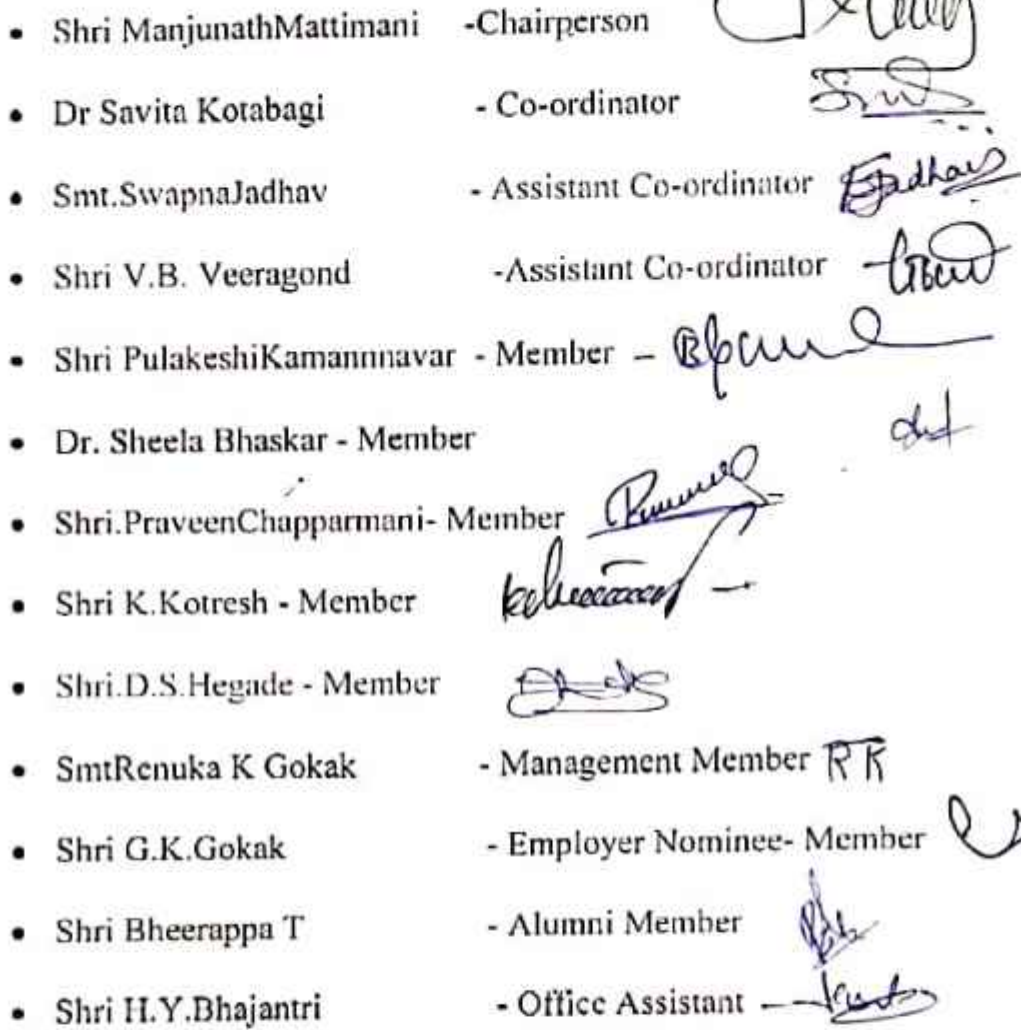 • Shri ManjunathMattimani -Chairperson
• Dr Savita Kotabagi - Co-ordinator
• Smt.SwapnaJadhav - Assistant Co-ordinator
• Shri V.B. Veeragond -Assistant Co-ordinator
• Shri PulakeshiKamannnavar - Member –
• Dr. Sheela Bhaskar - Member
• Shri.PraveenChapparmani- Member
• Shri K.Kotresh - Member
• Shri.D.S.Hegade - Member
• SmtRenuka K Gokak - Management Member RK
• Shri G.K.Gokak - Employer Nominee- Member
• Shri Bheerappa T - Alumni Member
• Shri H.Y.Bhajantri - Office Assistant –